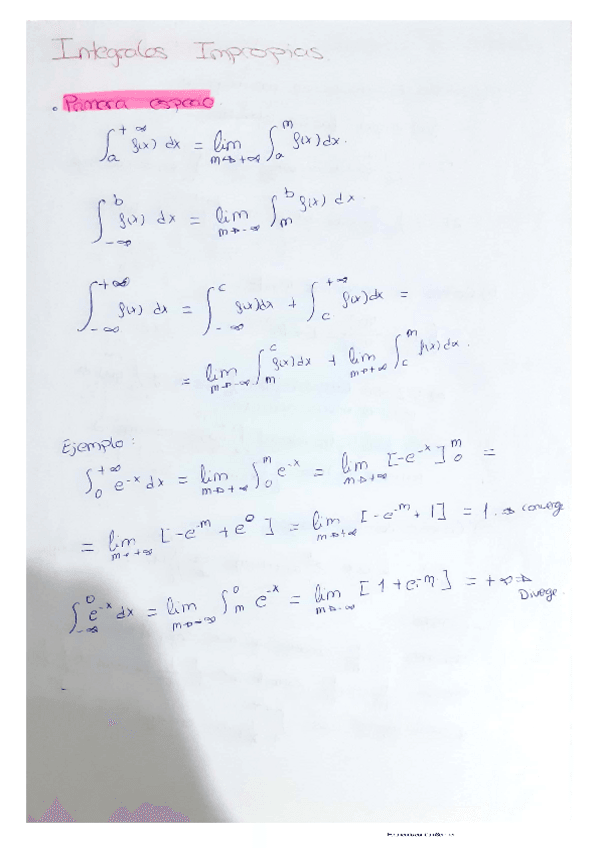 Integrales Impropias
• Primera especie
∫_a^{+∞} f(x) dx = lim_{m→+∞} ∫_a^m f(x) dx.
∫_{-∞}^b f(x) dx = lim_{m→-∞} ∫_m^b f(x) dx.
∫_{-∞}^{+∞} f(x) dx = ∫_{-∞}^c f(x) dx + ∫_c^{+∞} f(x) dx =
= lim_{m→-∞} ∫_m^c f(x) dx + lim_{m→+∞} ∫_c^m f(x) dx.
Ejemplo:
∫_0^{+∞} e^{-x} dx = lim_{m→+∞} ∫_0^m e^{-x} = lim_{m→+∞} [-e^{-x}]_0^m =
= lim_{m→+∞} [-e^{-m} + e^0] = lim_{m→+∞} [-e^{-m} + 1] = 1. ⇒ converge
∫_{-∞}^0 e^{-x} dx = lim_{m→-∞} ∫_m^0 e^{-x} = lim_{m→-∞} [1 + e^{-m}] = +∞ ⇒
Diverge.